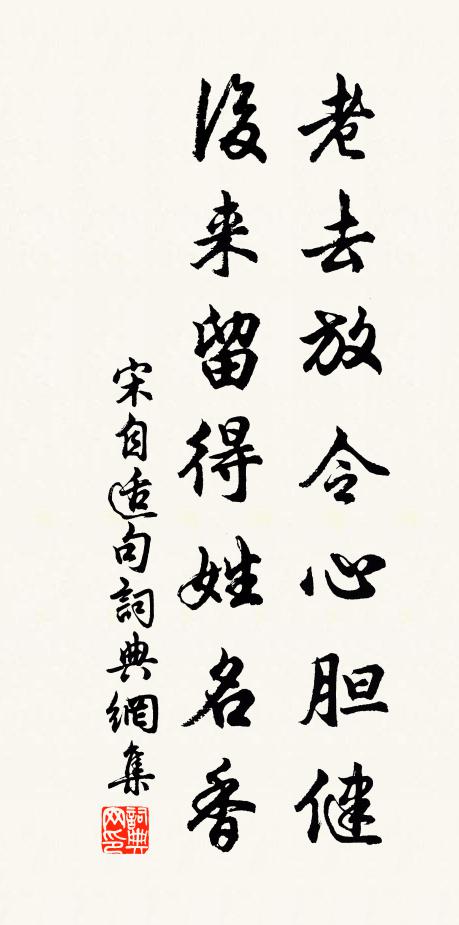 老去放令心胆健
後来留得姓名香
宋自适句詞典網集
詞典网印